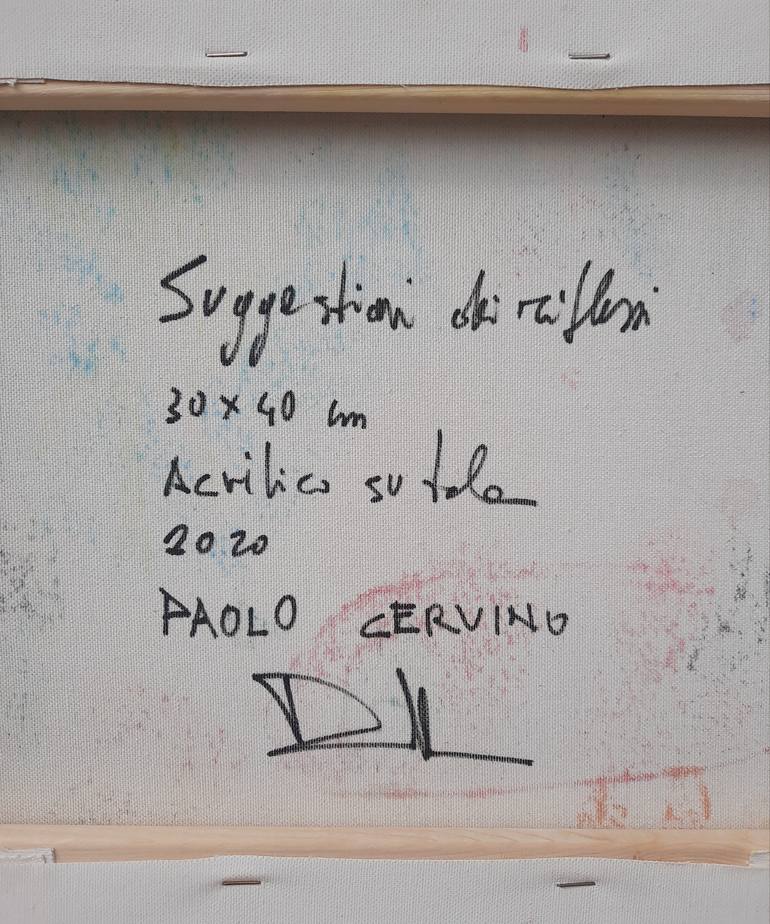 Suggestioni dei riflessi
30 x 40 cm
Acrilico su tela
2020
PAOLO CERVINO